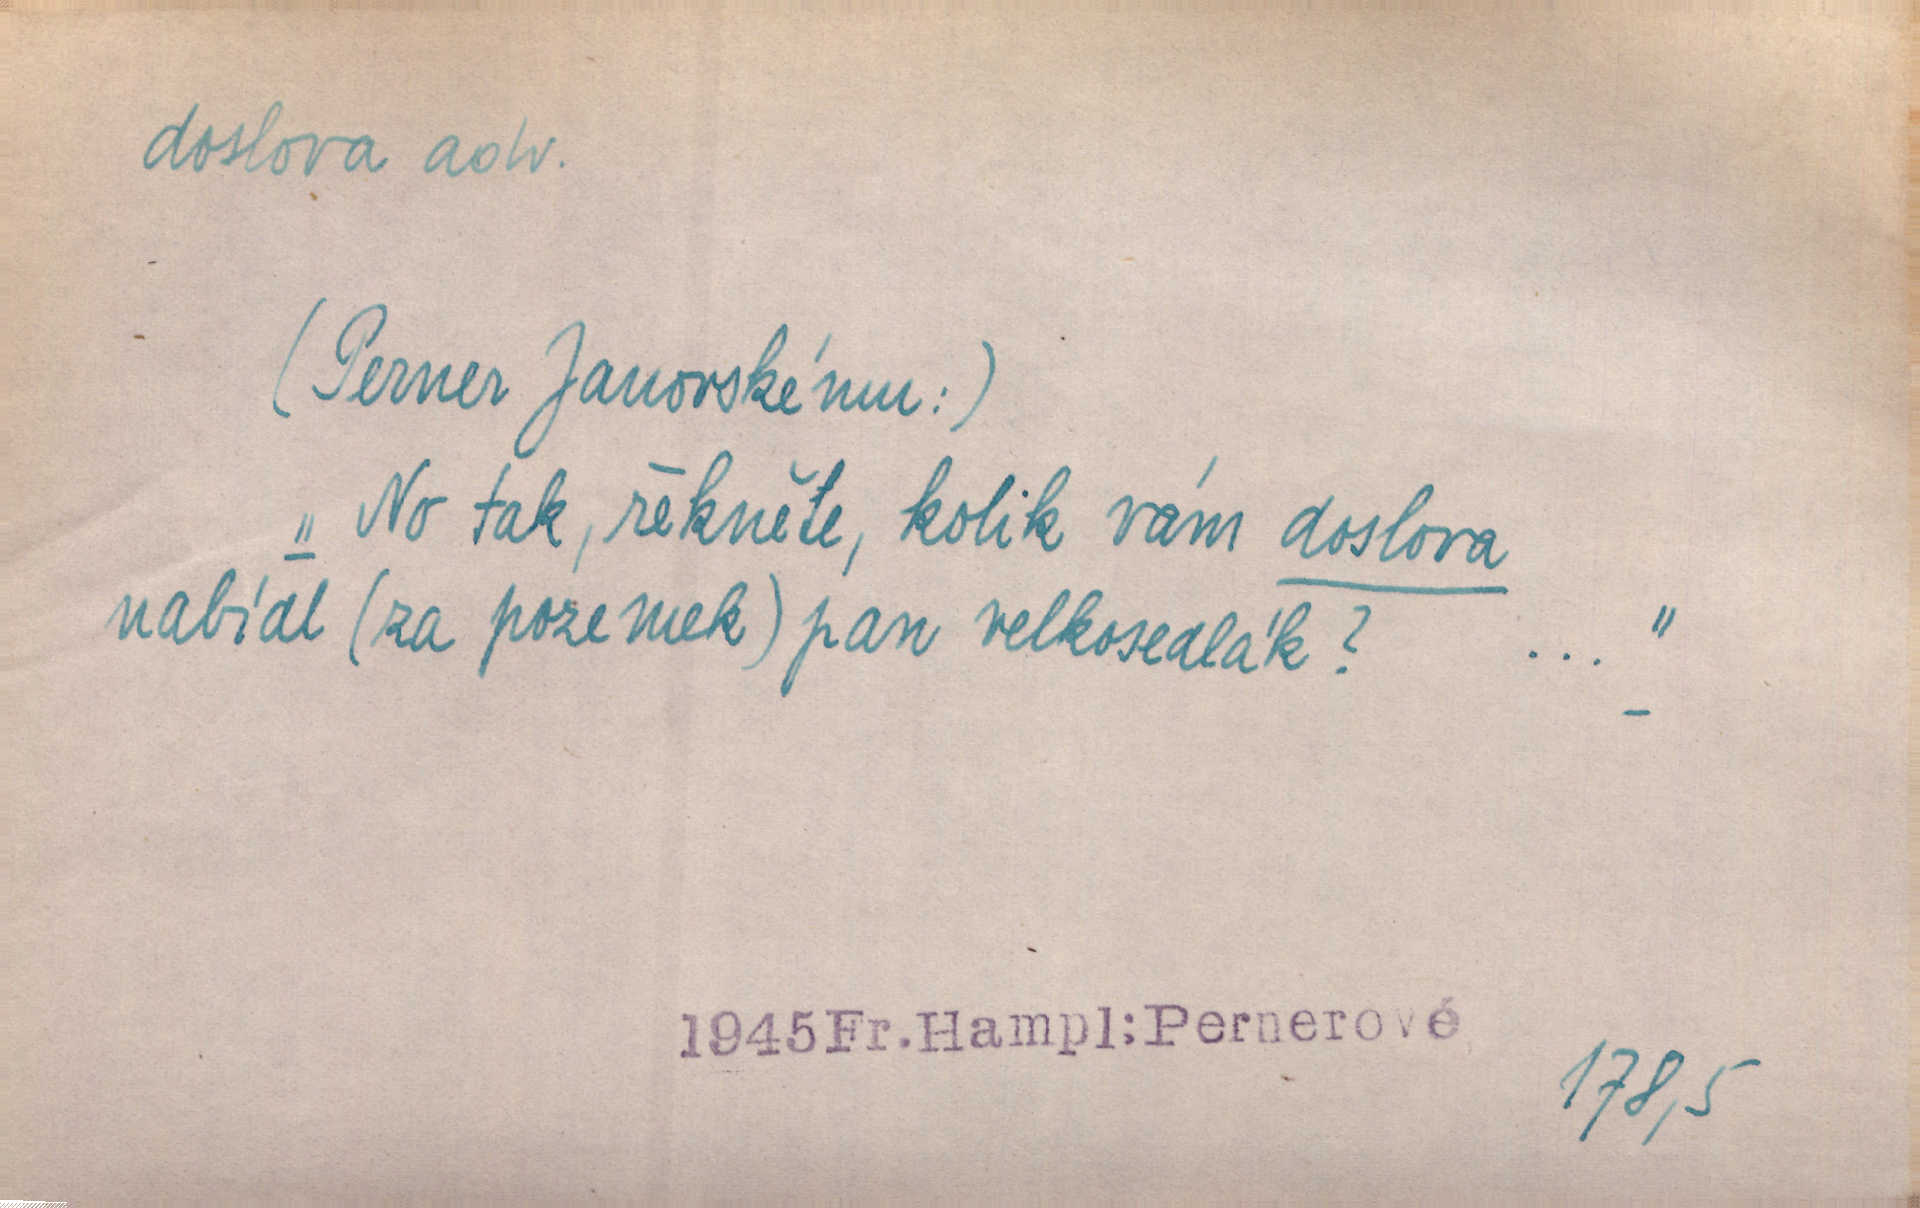 doslova adv.
(Perner Janovskému:)
„No tak, řekněte, kolik vám doslova
nabídl (za pozemek) pan velkosedlák? ..."
1945Fr.Hampl;Pernerové
178,5